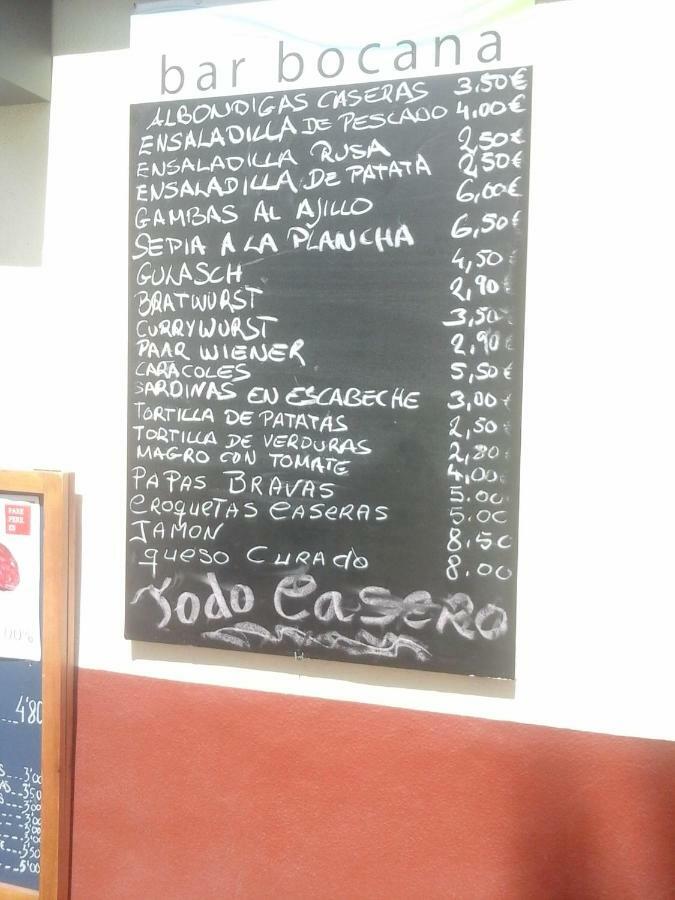 bar bocana
ALBONDIGAS CASERAS 3,50€
ENSALADILLA DE PESCADO 4,00€
ENSALADILLA RUSA 2,50€
ENSALADILLA DE PATATA 2,50€
GAMBAS AL AJILLO 6,00€
SEPIA A LA PLANCHA 6,50€
GULASCH 4,50€
BRATWURST 2,90€
CURRYWURST 3,50€
PAAR WIENER 2,90€
CARACOLES 5,50€
SARDINAS EN ESCABECHE 3,00€
TORTILLA DE PATATAS 2,50€
TORTILLA DE VERDURAS 2,80€
MAGRO CON TOMATE 4,00€
PAPAS BRAVAS 5.00€
CROQUETAS CASERAS 5.00
JAMON 8.50€
queso Curado 8.00€
Todo CaSERO
00%
4'80
3'00
3'50
5'50
5'00